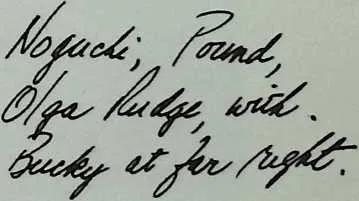 Noguchi, Pound,
Olga Rudge, with.
Bucky at far right.